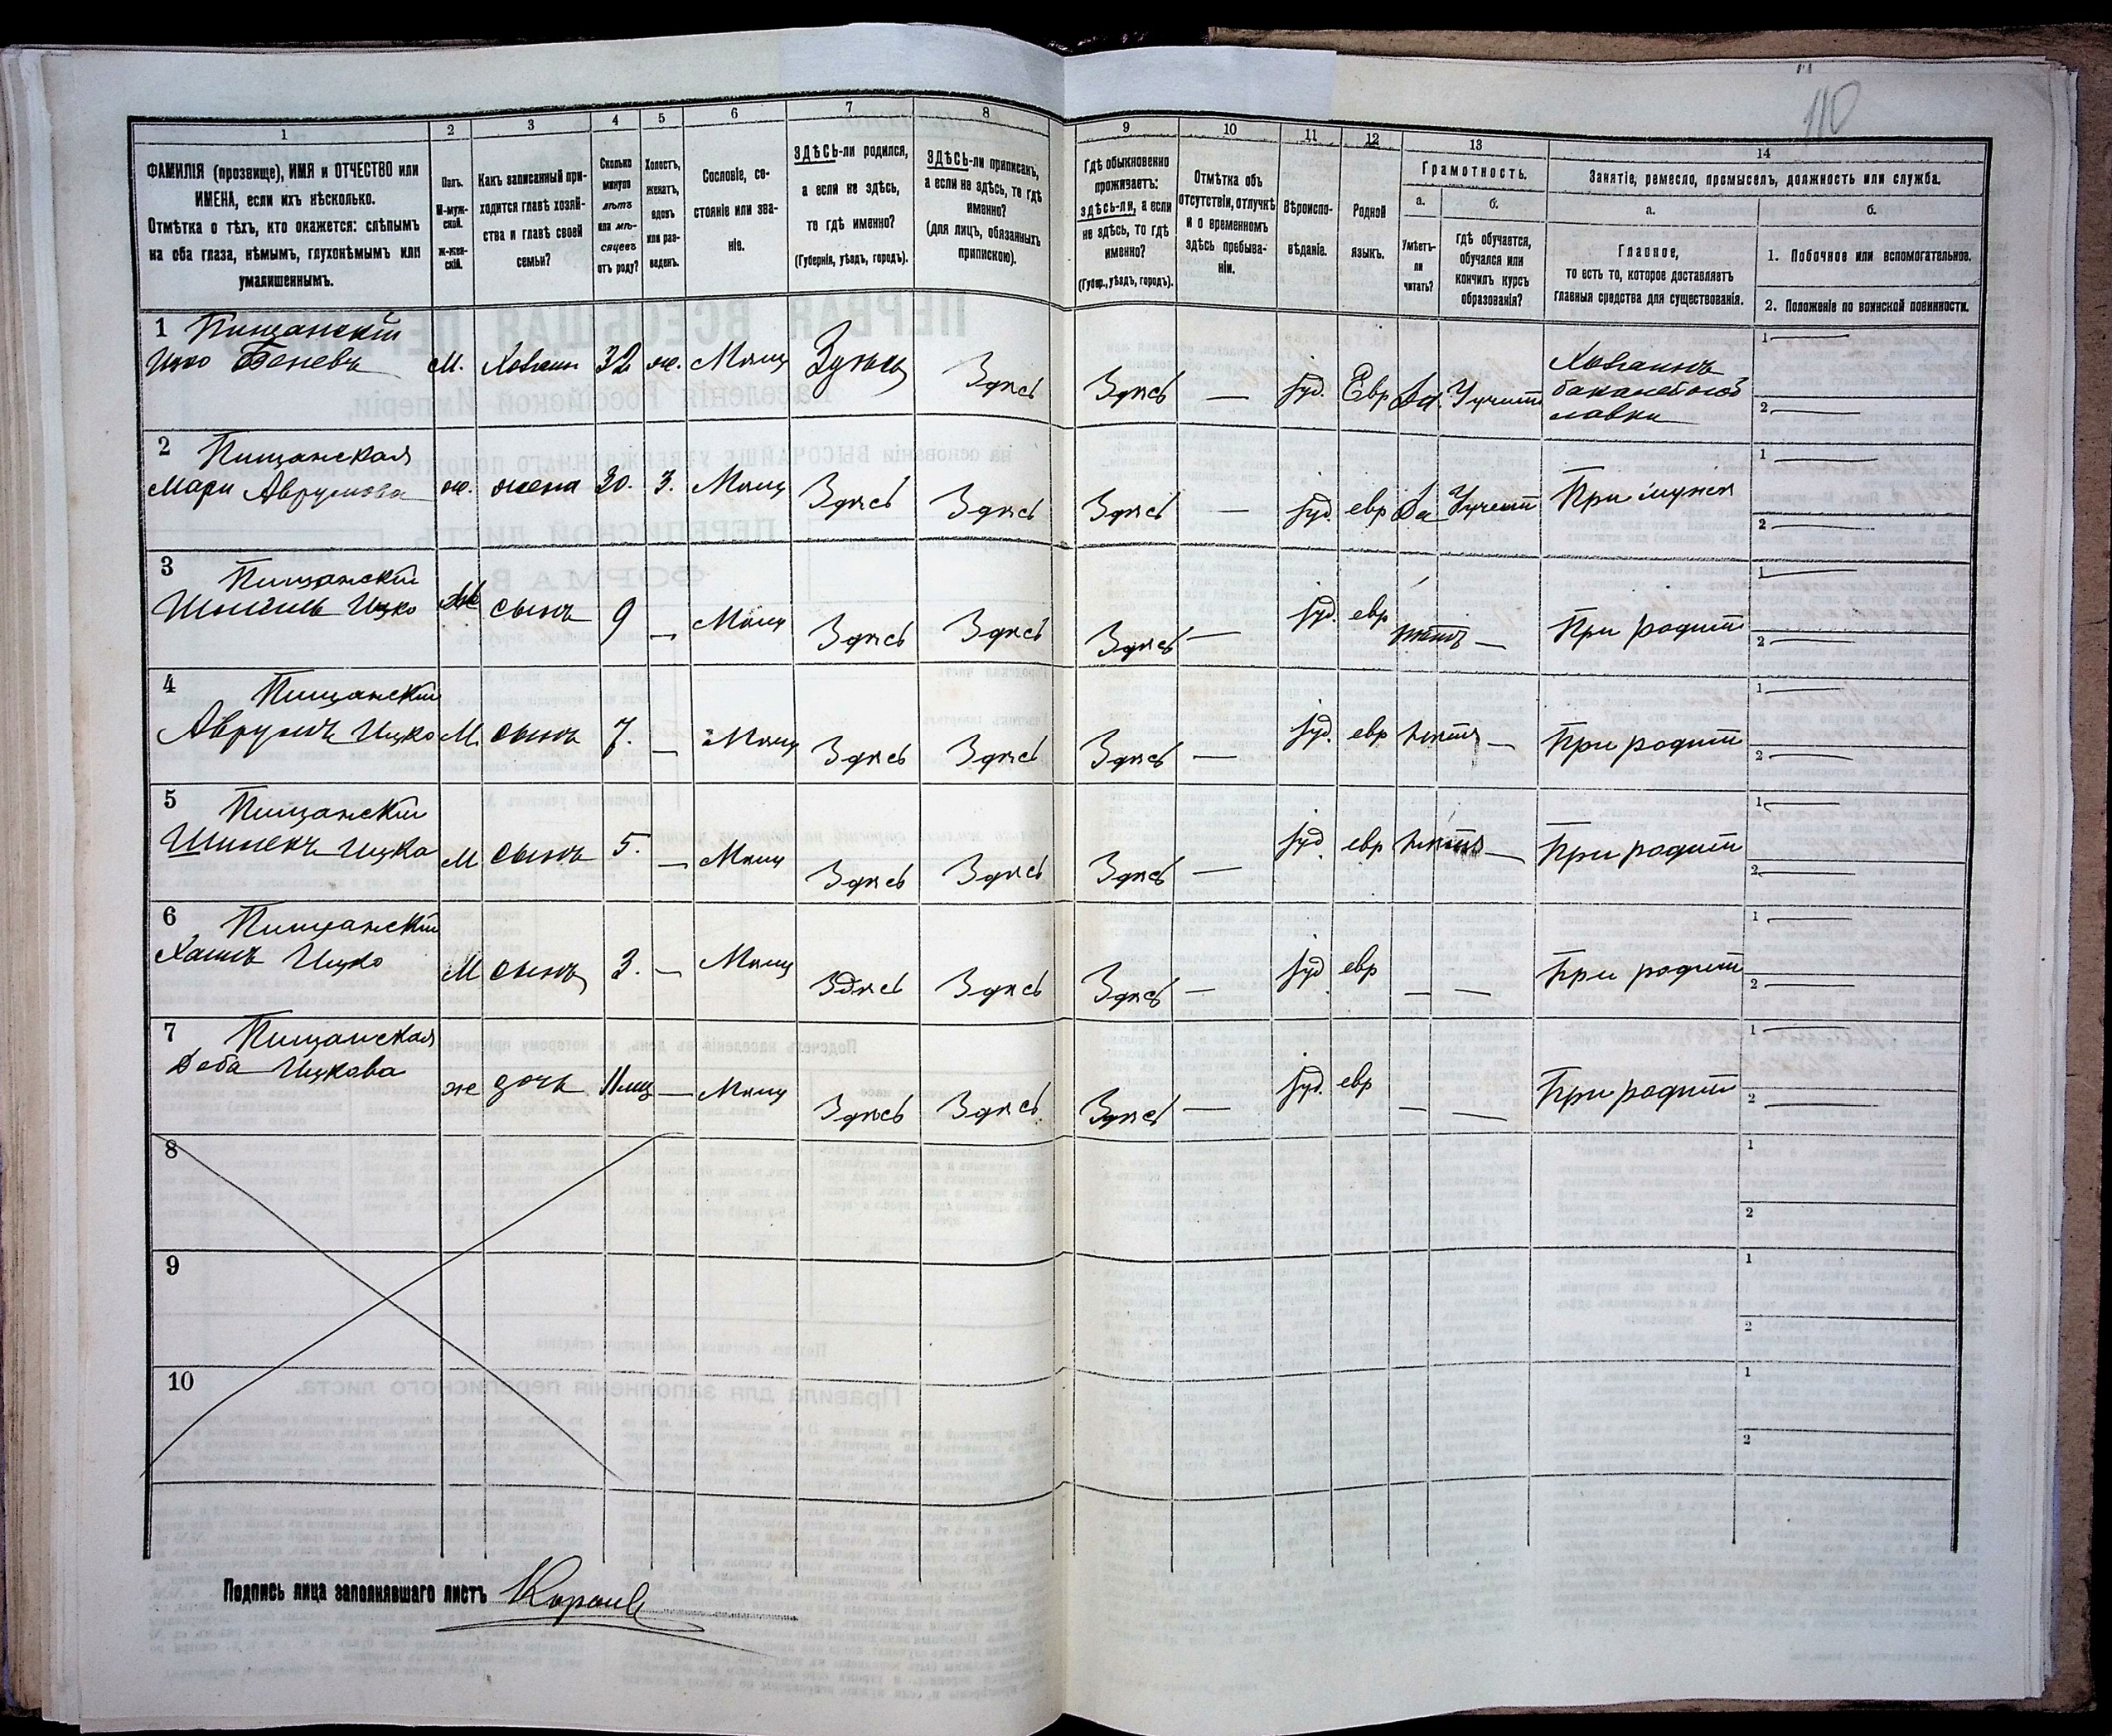 110
1 2 3 4 5 6 7 8 9 10 11 12 13 14
ФАМИЛІЯ (прозвище), ИМЯ и ОТЧЕСТВО или
ИМЕНА, если ихъ нѣсколько.
Отмѣтка о тѣхъ, кто окажется: слѣпымъ
на оба глаза, нѣмымъ, глухонѣмымъ или
умалишеннымъ.
Полъ.
М-муж-
ской.
ж-жен-
скій.
Какъ записанный при-
ходится главѣ хозяй-
ства и главѣ своей
семьи?
Сколько
минуло
лѣтъ
или мѣ-
сяцевъ
отъ роду?
Холостъ,
женатъ,
вдовъ
или раз-
веденъ.
Сословіе, со-
стояніе или зва-
ніе.
ЗДѢСЬ-ли родился,
а если не здѣсь,
то гдѣ именно?
(Губернія, уѣздъ, городъ).
ЗДѢСЬ-ли приписанъ,
а если не здѣсь, то гдѣ
именно?
(для лицъ, обязанныхъ
припискою).
Гдѣ обыкновенно
проживаетъ:
здѣсь-ли, а если
не здѣсь, то гдѣ
именно?
(Губер., уѣздъ, городъ).
Отмѣтка объ
отсутствіи, отлучкѣ
и о временномъ
здѣсь пребыва-
ніи.
Вѣроиспо-
вѣданіе.
Родной
языкъ.
Грамотность.
а.
Умѣетъ-
ли
читать?
б.
Гдѣ обучается,
обучался или
кончилъ курсъ
образованія?
Занятіе, ремесло, промыселъ, должность или служба.
а.
Главное,
то есть то, которое доставляетъ
главныя средства для существованія.
б.
1. Побочное или вспомогательное.
2. Положеніе по воинской повинности.
1 Пищанскій
Ицко М. Хозяин 32 ж. Мѣщ Здѣсь Здѣсь — Іуд. Евр Да Учит Хозяинъ
бакалейной
лавки
1 —
2 —
2 Пищанская
Мари Аврумова ж. жена 30. З. Мѣщ Здѣсь Здѣсь Здѣсь — Іуд. евр Да Учит При мужѣ
1 —
2 —
3 Пищанскій
Ицко М сынъ 9 — Мѣщ Здѣсь Здѣсь Здѣсь — Іуд. евр нѣтъ — При родит
1 —
2 —
4 Пищанскій
Аврумъ Ицко М. сынъ 7. — Мѣщ Здѣсь Здѣсь Здѣсь — Іуд. евр нѣтъ — При родит
1 —
2 —
5 Пищанскій
Ицко М сынъ 5. — Мѣщ Здѣсь Здѣсь Здѣсь — Іуд евр нѣтъ — При родит
1 —
2 —
6 Пищанскій
Хаимъ Ицко М сынъ 3. — Мѣщ Здѣсь Здѣсь Здѣсь — Іуд евр — — При родит
1 —
2 —
7 Пищанская
Ицкова ж дочь 11 мц — Мѣщ Здѣсь Здѣсь Здѣсь — Іуд. евр — — При родит
1 —
2 —
8
1
2
9
1
2
10
1
2
Подпись лица заполнявшаго листъ